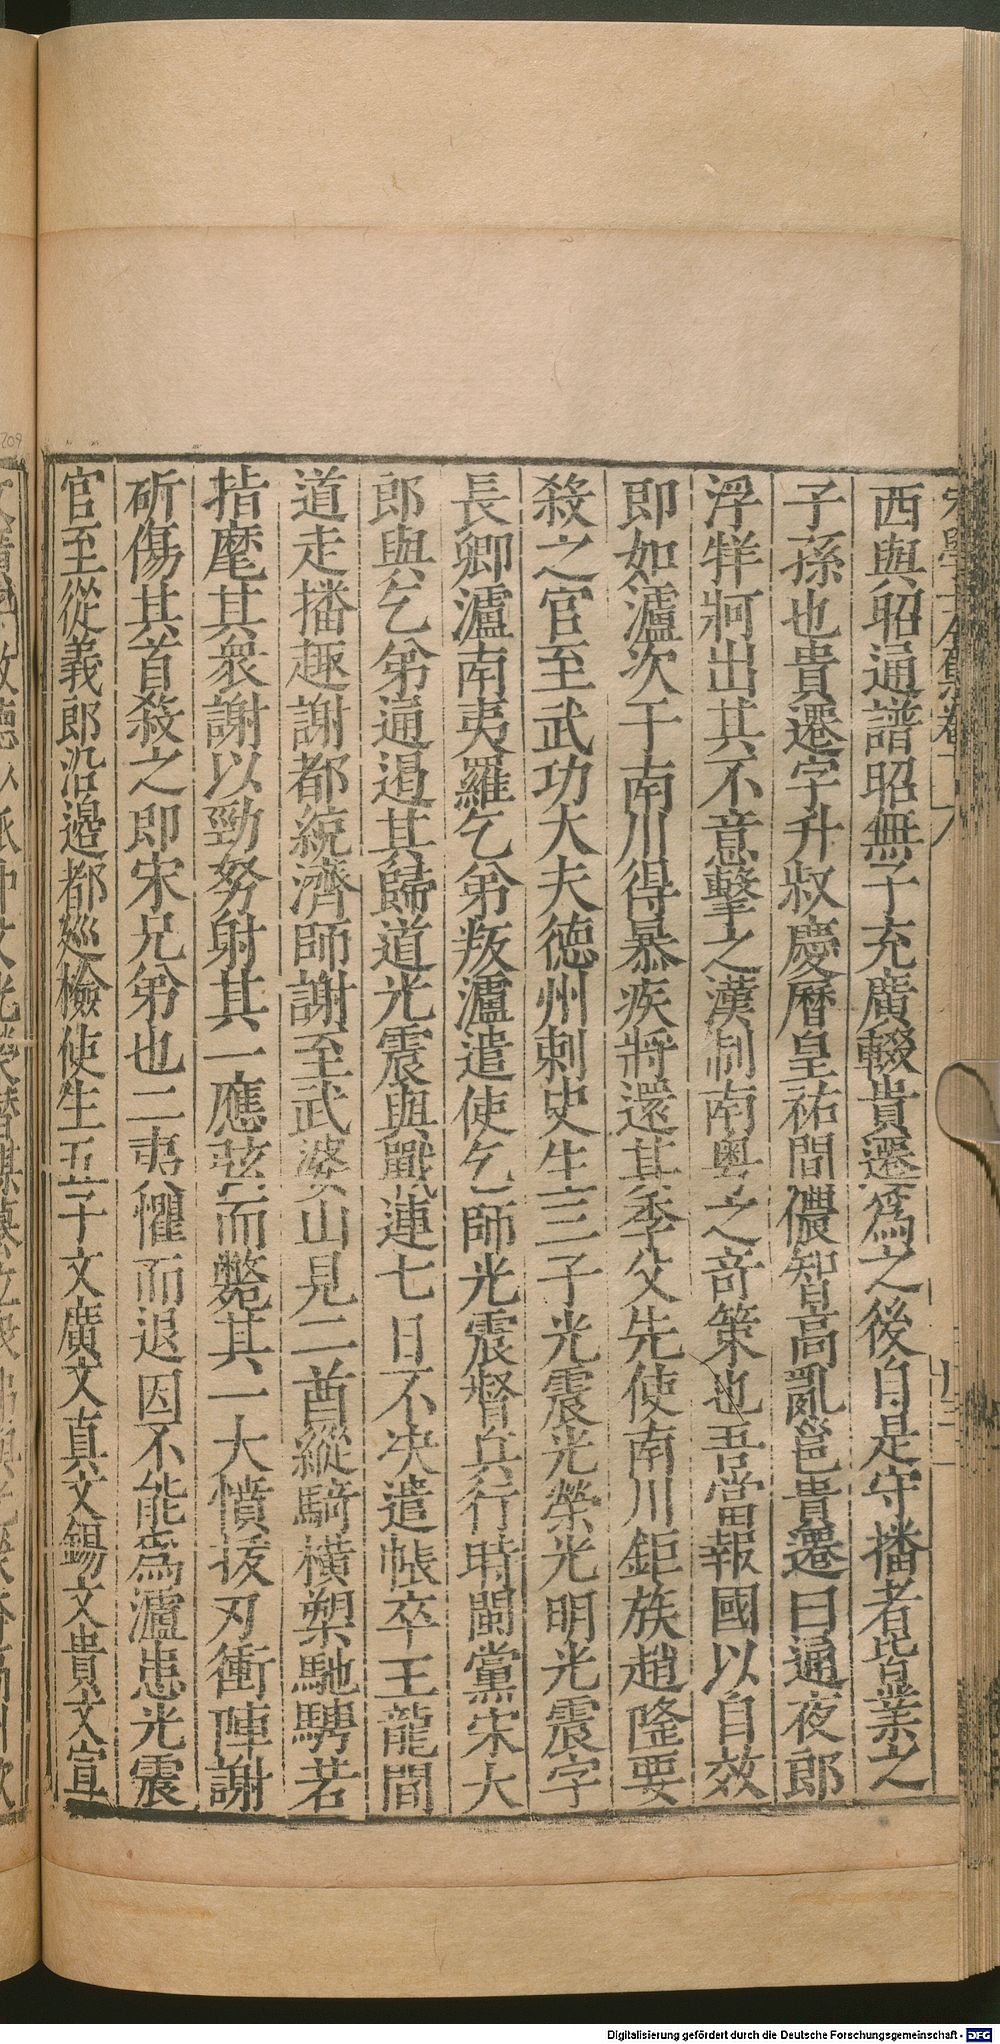 西與昭通譜昭無子充廣輟貴遷爲之後自是守播者皆業之
子孫也貴遷字升叔慶曆皇祐間儂智高亂邕貴遷曰通夜郎
浮牂牁出其不意擊之漢制南粵之奇策也吾當報國以自效
即如瀘次于南川得暴疾將還其季父先使南川鉅族趙隆要
殺之官至武功大夫德州刺史生三子光震光榮光明光震字
長卿瀘南夷羅乞弟叛瀘遣使乞師光震督兵行時閩黨宋大
郎與乞弟通遏其歸道光震與戰連七日不决遣帳卒王龍間
道走播趣謝都統濟師謝至武婆山見二酋縱騎橫槊馳騁若
指麾其衆謝以勁弩射其一應弦而斃其一大憤拔刃衝陣謝
斫傷其首殺之即宋兄弟也二夷懼而退因不能爲瀘患光震
官至從義郎沿邉都廵檢使生五子文廣文真文錫文貴文宣
Digitalisierung gefördert durch die Deutsche Forschungsgemeinschaft - DFG